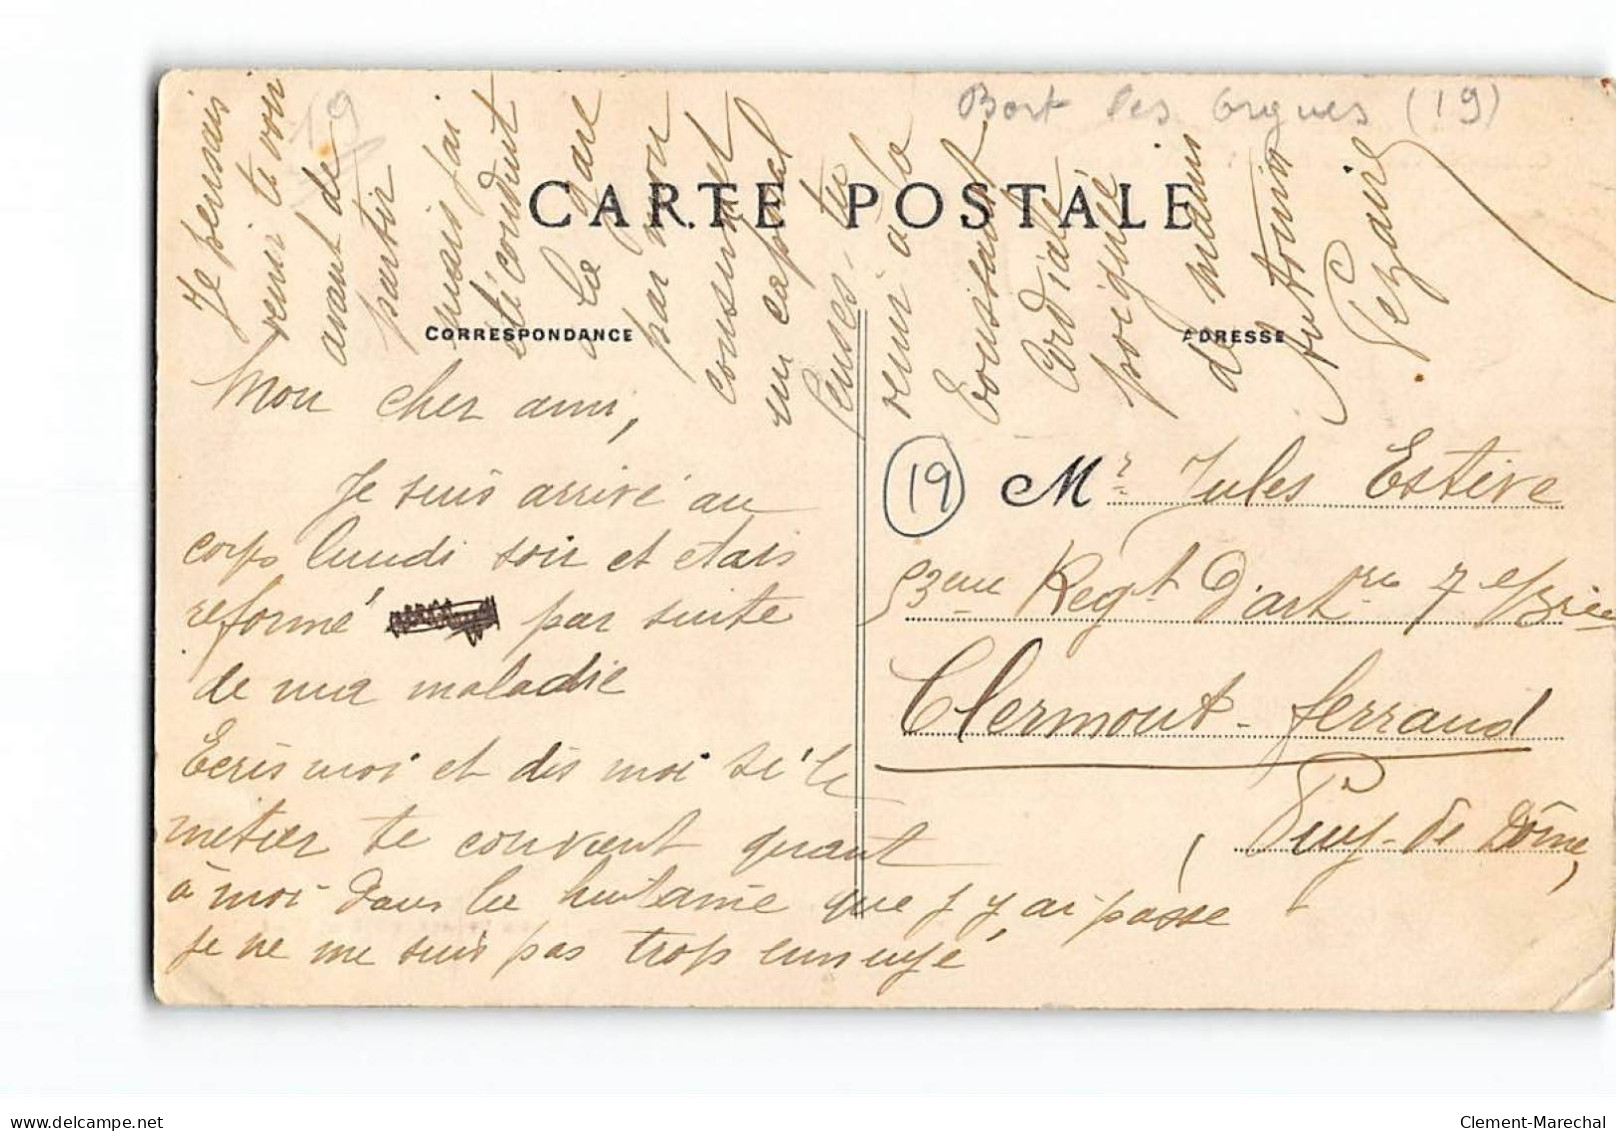 Bort les Orgues (19)
19
CARTE POSTALE
CORRESPONDANCE
ADRESSE
Mon cher ami,
Je suis arrivé au
corps lundi soir et etais
reformé par suite
de ma maladie
Ecris moi et dis moi si le
métier te convient quant
à moi dans la huitaine que j'y ai passé
je ne me suis pas trop ennuyé
Je pensais
venir te voir
avant de
partir
mais j'ai
été conduit
à la gare
par mon
consul et
un caporal
Penses-tu
venir à la
Toussaint
Cordiale
poignée
de mains
Antonin
19
Mr Jules Estève
53eme Regt d'artrie 7e Brie
Clermont-ferrand
Puy-de Dôme
Clement-Marechal
delcampe.net